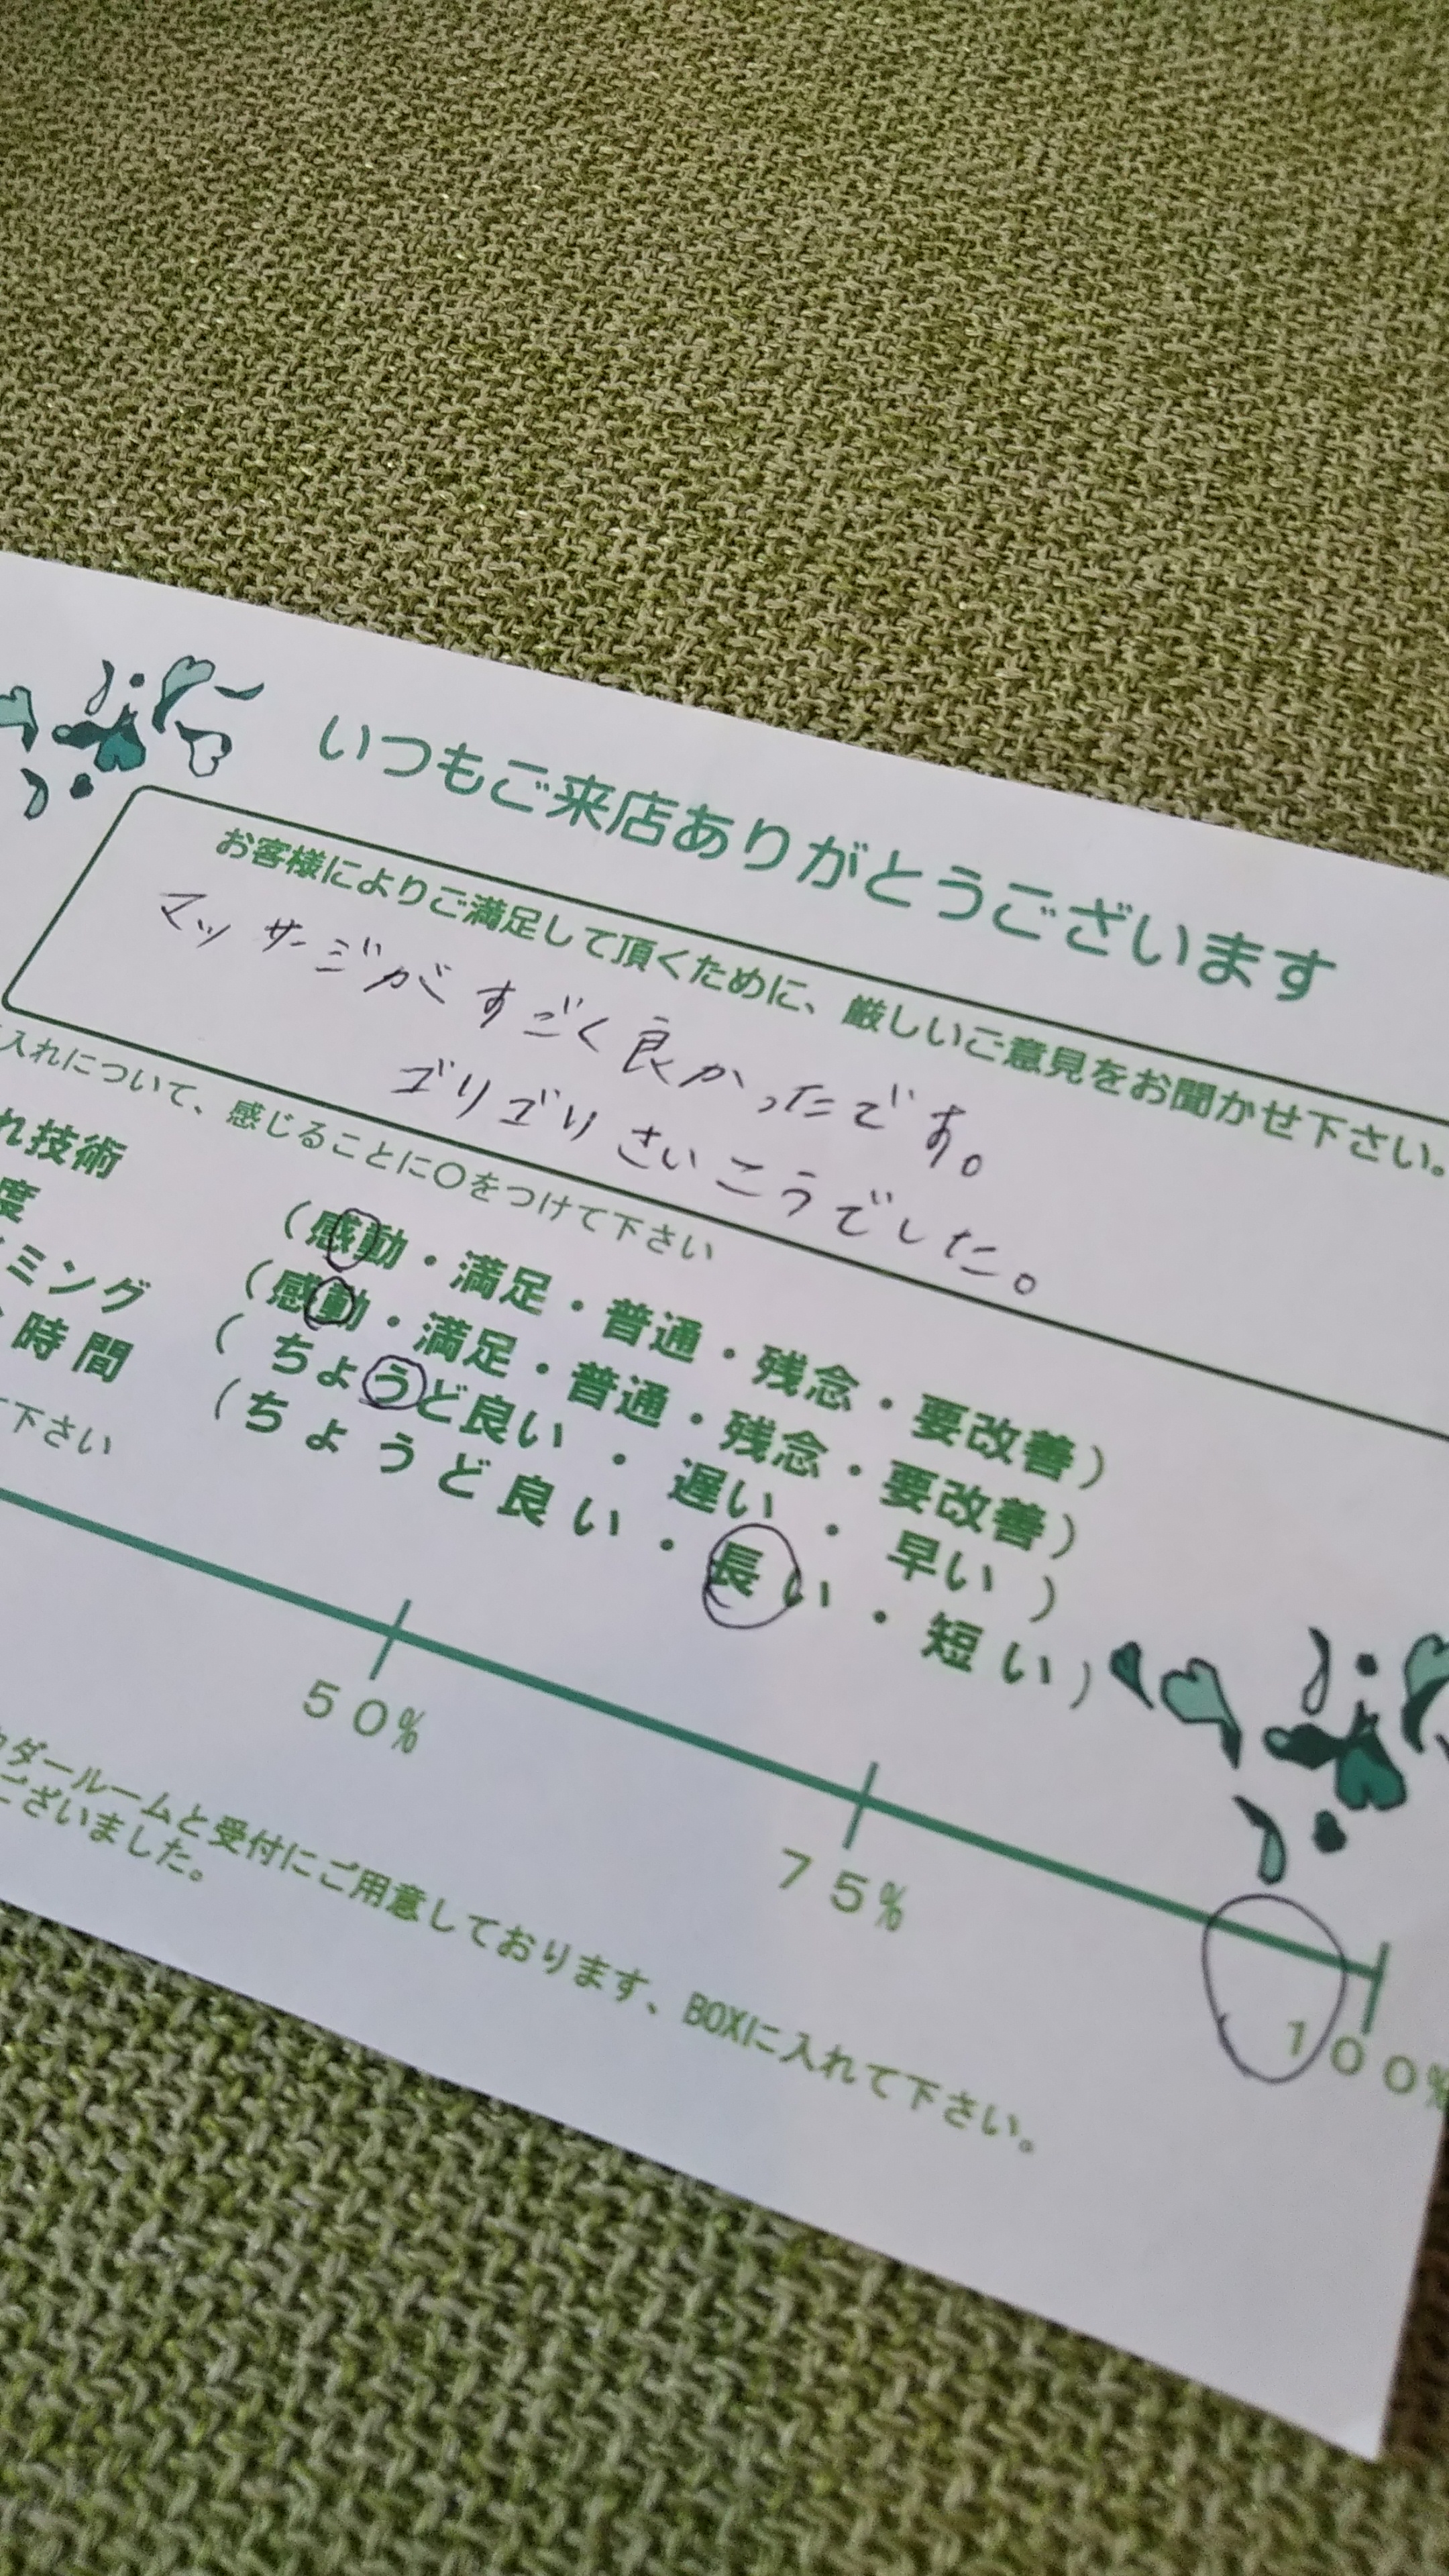 いつもご来店ありがとうございます
お客様によりご満足して頂くために、厳しいご意見をお聞かせ下さい。
マッサージがすごく良かったです。
ゴリゴリさいこうでした。
入れについて、感じることに〇をつけて下さい
れ技術 (感動・満足・普通・残念・要改善)
度 (感動・満足・普通・残念・要改善)
ミング (ちょうど良い・遅い・早い)
時間 (ちょうど良い・長い・短い)
下さい
50% 75% 100%
ダールームと受付にご用意しております、BOXに入れて下さい。
ございました。